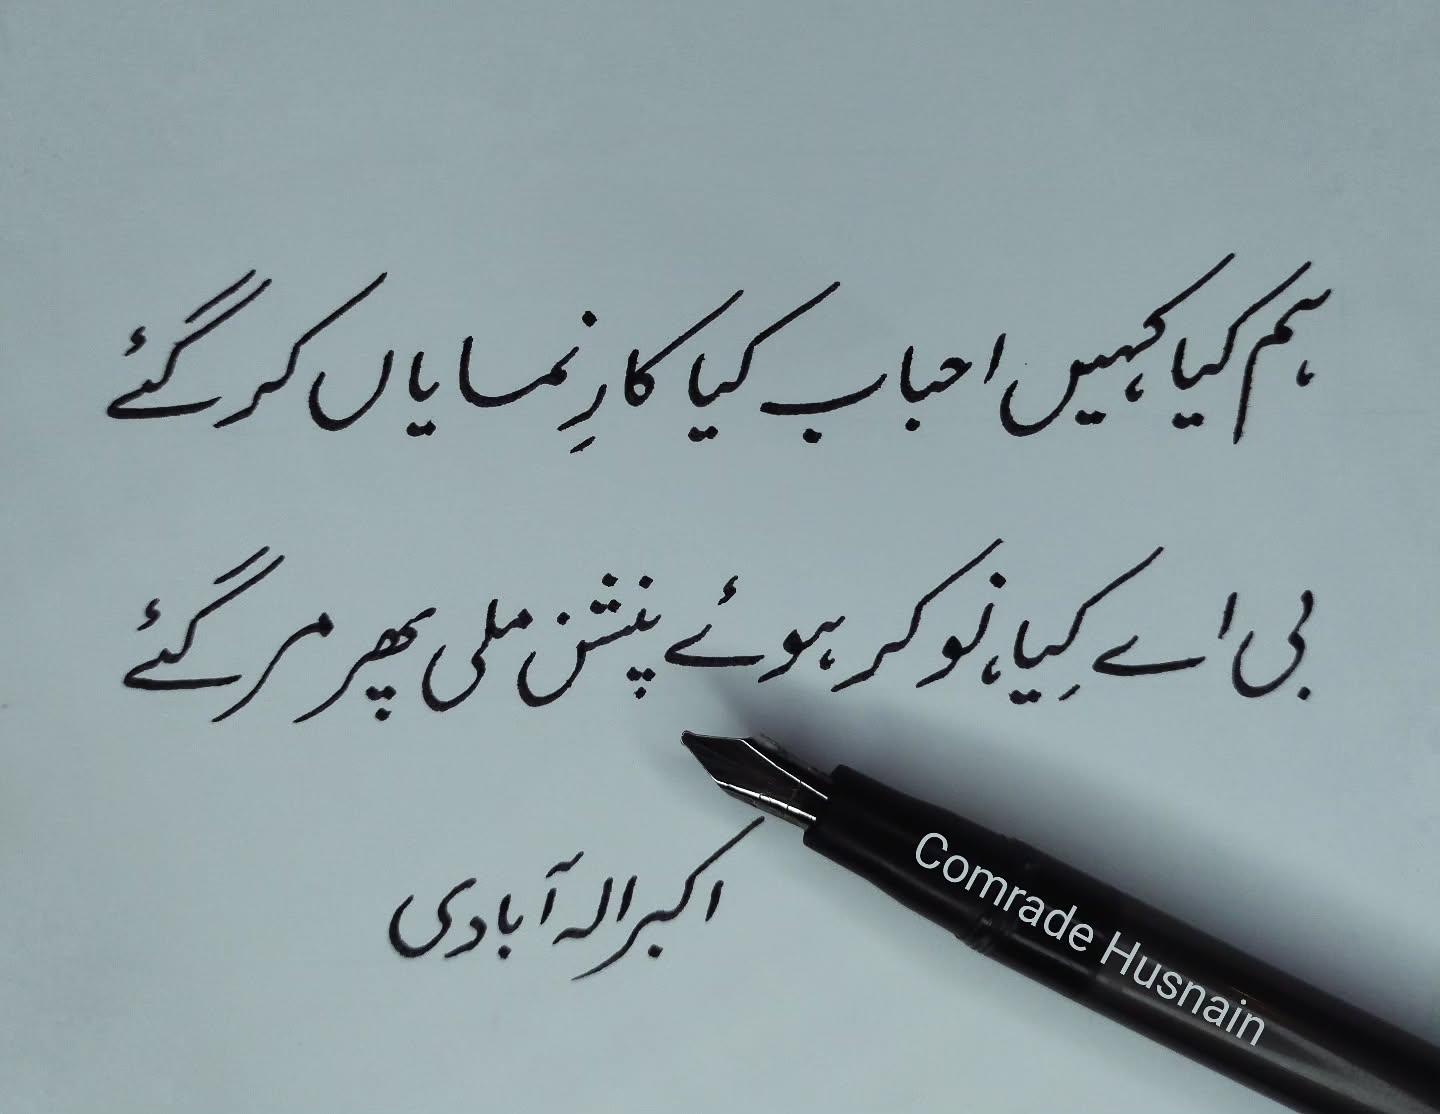 ہم کیا کہیں احباب کیا کارِ نمایاں کر گئے
بی اے کِیا، نوکر ہوئے پنشن ملی پھر مر گئے
اکبر الہ آبادی
Comrade Husnain